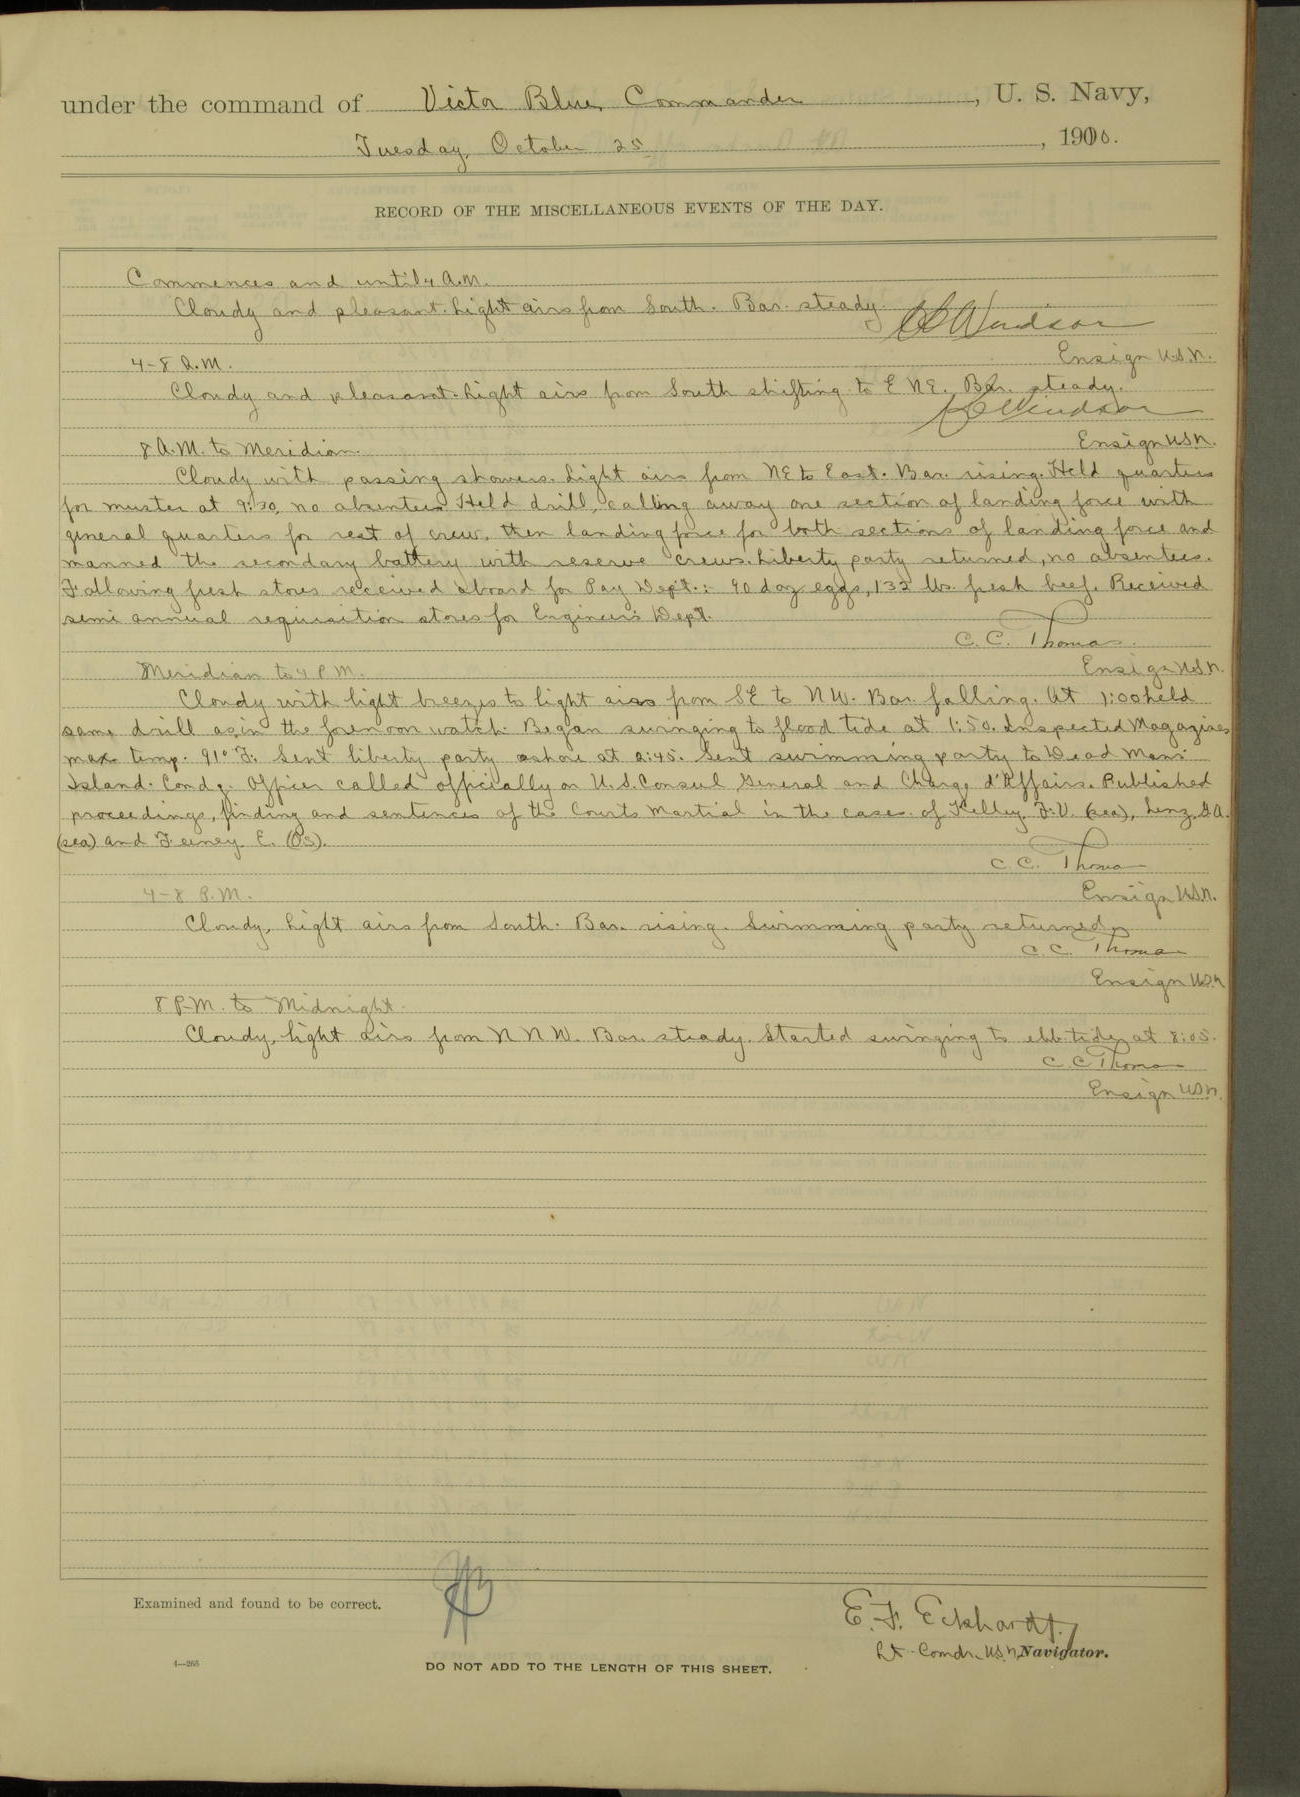 under the command of Victor Blue, Commander, U. S. Navy,
Tuesday, October 25, 1910.
RECORD OF THE MISCELLANEOUS EVENTS OF THE DAY.
Commences and until 4 A.M.
Cloudy and pleasant. Light airs from South. Bar. steady.
Windsor
Ensign U.S.N.
4-8 A.M.
Cloudy and pleasant. Light airs from South shifting to E N E. Bar. steady.
Windsor
Ensign U.S.N.
8 A.M. to Meridian.
Cloudy with passing showers. Light airs from NE to East. Bar. rising. Held quarters
for muster at 9:30, no absentees. Held drill, calling away one section of landing force with
general quarters for rest of crew, then landing force for both sections of landing force and
manned the secondary battery with reserve crews. Liberty party returned, no absentees.
Following fresh stores received aboard for Pay Dept.: 90 doz eggs, 132 lbs. fresh beef. Received
semi annual requisition stores for Engineer's Dept.
C. C. Thomas
Ensign U.S.N.
Meridian to 4 P.M.
Cloudy with light breezes to light airs from SE to NW. Bar. falling. At 1:00 held
same drill as in the forenoon watch. Began swinging to flood tide at 1:50. Inspected Magazines
max temp. 91° F. Sent liberty party ashore at 2:45. Sent swimming party to Dead Mans
Island. Comd'g. Officer called officially on U.S. Consul General and Charge d'Affairs. Published
proceedings, finding and sentences of the Courts Martial in the cases of Kelley, F.V. (sea), Lenz, G.A.
(sea) and Feeney E. (OS).
C. C. Thomas
Ensign U.S.N.
4-8 P.M.
Cloudy, light airs from South. Bar. rising. Swimming party returned.
C. C. Thomas
Ensign U.S.N.
8 P.M. to Midnight.
Cloudy, light airs from N N W. Bar. steady. Started swinging to ebb tide at 8:05.
C. C. Thomas
Ensign U.S.N.
Examined and found to be correct.
E. F. Eckhardt,
Lt-Comdr. U.S.N. Navigator.
4—265
DO NOT ADD TO THE LENGTH OF THIS SHEET.